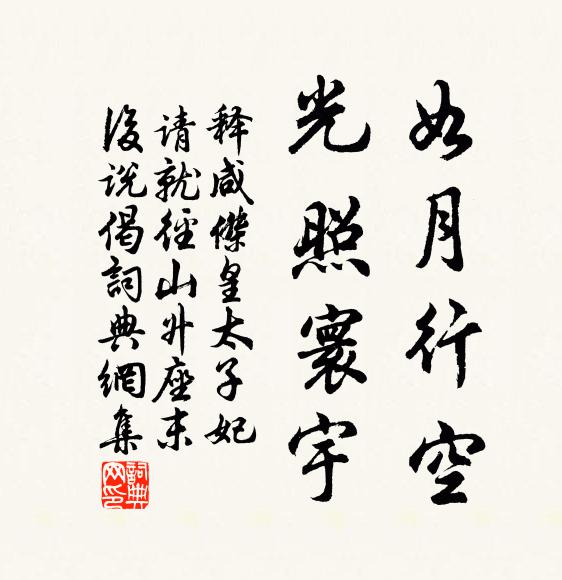 如月行空
光照寰宇
释咸傑皇太子妃
请就徑山升座末
後说偈詞典網集
詞典网印